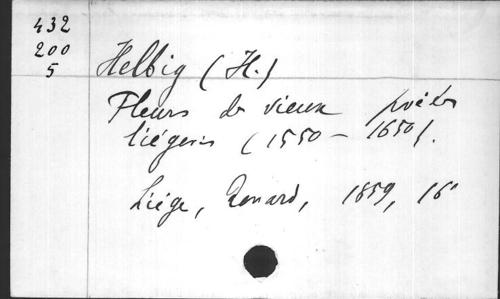 432
200
5
Helbig (H.)
Fleurs de vieux poètes
liégeois (1550 - 1650).
Liége, Renard, 1859, 16°